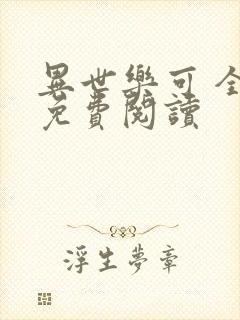 異世樂可 全
免費閱讀
浮生夢章